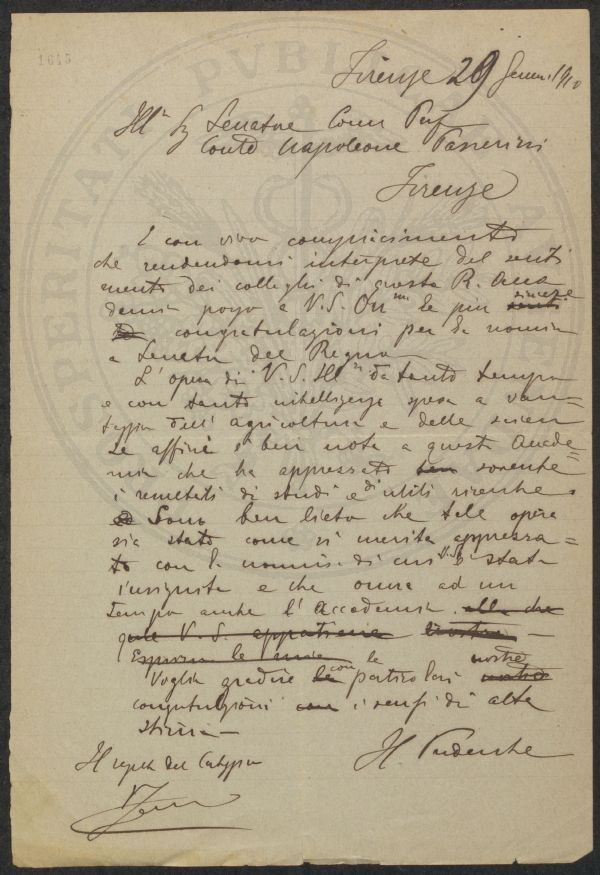 1615
PVBLIC
SPERITATI
Firenze 29 Genn. 1910
Ill. Sg Senatore Comm Prof
Conte Napoleone Passerini
Firenze
È con vivo compiacimento
che rendendomi interprete del senti
mento dei colleghi di questa R. Acca
demia porgo a V.S. On le più sincere
congratulazioni per la nomina
a Senator del Regno
L'opera di V.S. Ill da tanto tempo
e con tanta intelligenza spesa a van=
taggio dell' agricoltura e delle scien
ze affini è ben nota a questa Accade=
mia che ha apprezzato sovente
i resultati di studi e di utili ricerche.
Sono ben lieto che tale opera
sia stata come si merita apprezza=
to con la nomina di cui V.S. è stata
insignita e che onora ad un
tempo anche l'Accademia. alla
quale V. S. appartiene
Esprimo le mie
Voglia gradire con le particolari nostre
congratulazioni i sensi di alta
stima
Il Presidente
Il